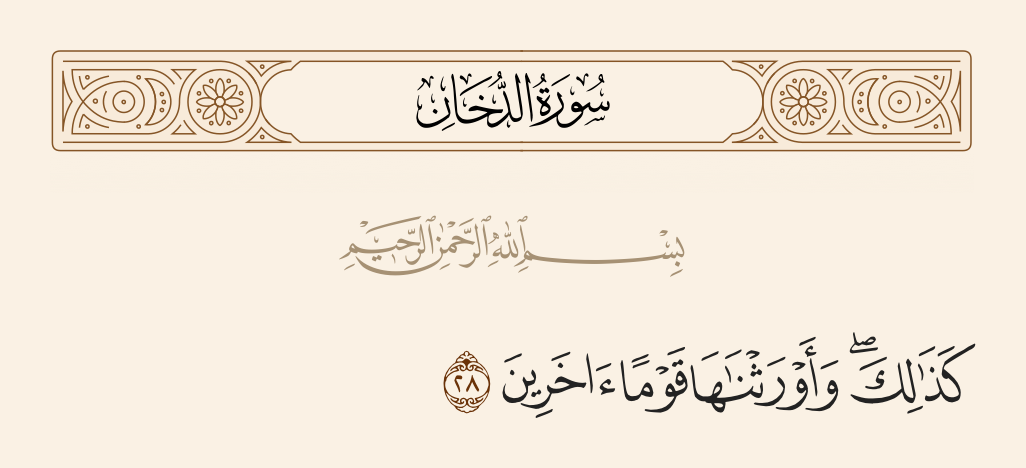 سُورَةُ الدُّخَانِ
بِسْمِ ٱللَّهِ ٱلرَّحْمَٰنِ ٱلرَّحِيمِ
كَذَٰلِكَ ۖ وَأَوْرَثْنَٰهَا قَوْمًا ءَاخَرِينَ ٢٨